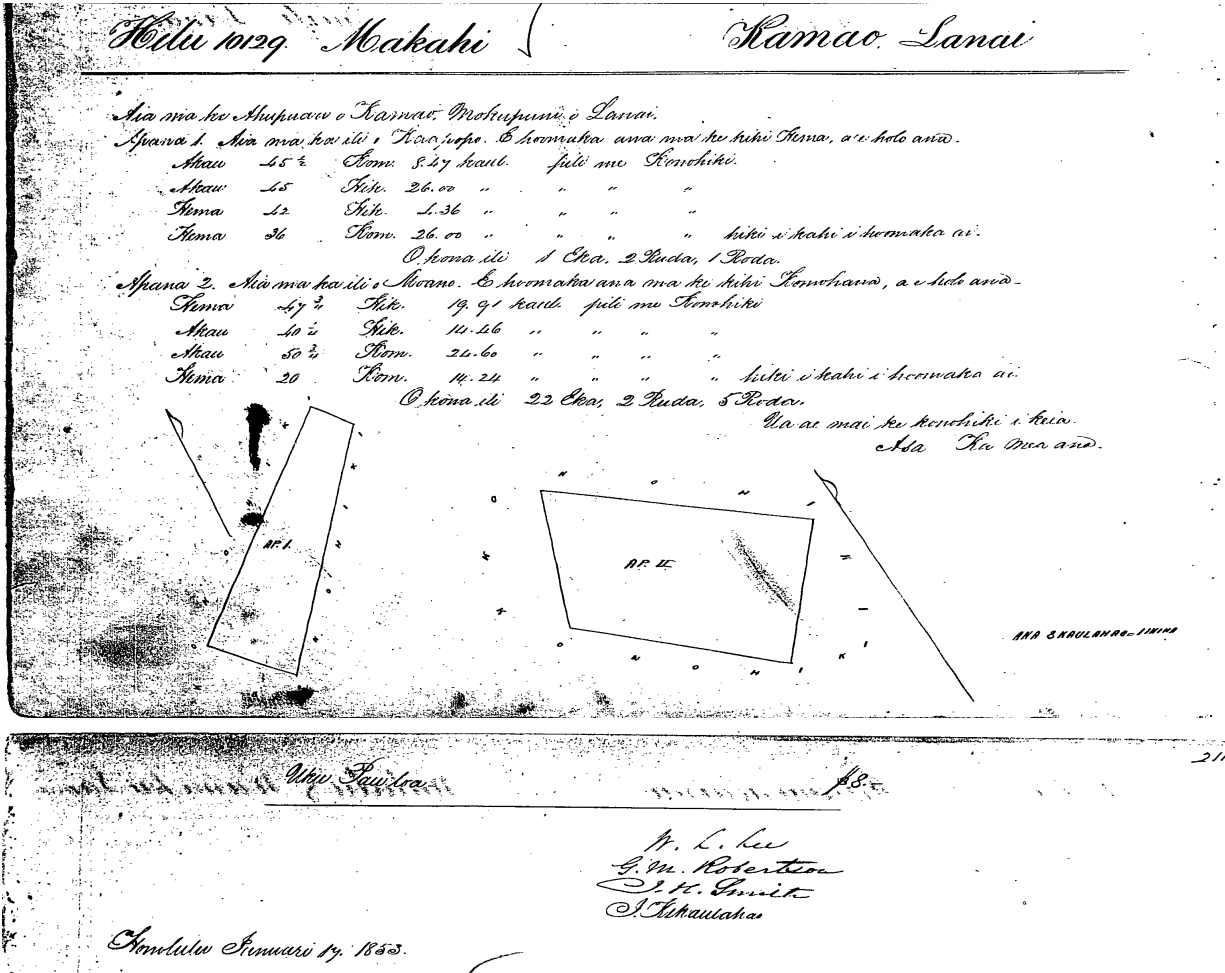 Helu 10129. Makahi Kamao. Lanai
Aia ma ke Ahupuaa o Kamao, Mokupuni o Lanai.
Apana 1. Aia ma ka ili o Kaapopo. E hoomaka ana ma ke kihi Hema, a e holo ana.
Akau 45 ½ Kom. 8.47 kaul. pili me Konohiki.
Akau 45 Hik. 26.00 " " " "
Hema 42 Hik. 4.36 " " " "
Hema 36 Kom. 26.00 " " " " hiki i kahi i hoomaka ai.
O kona ili 1 Eka, 2 Ruda, 1 Roda.
Apana 2. Aia ma ka ili o Moano. E hoomaka ana ma ke kihi Komohana, a e holo ana
Hema 47 ¾ Hik. 19.91 kaul. pili me Konohiki
Akau 40 Hik. 14.46 " " " "
Akau 50 Kom. 24.60 " " " "
Hema 20 Kom. 14.24 " " " " hiki i kahi i hoomaka ai.
O kona ili 22 Eka, 2 Ruda, 5 Roda.
Ua ae mai ke konohiki i keia.
Asa Ka mea ana.
AP. I.
AP. II
KONOHIKI
KONOHIKI
ANA 8 KAULAHAO = 1 INIHA
Uku Pau loa $8.-
W. L. Lee
G. M. Robertson
J. H. Smith
J. Kekaulahao
Honolulu Januari 17. 1853.